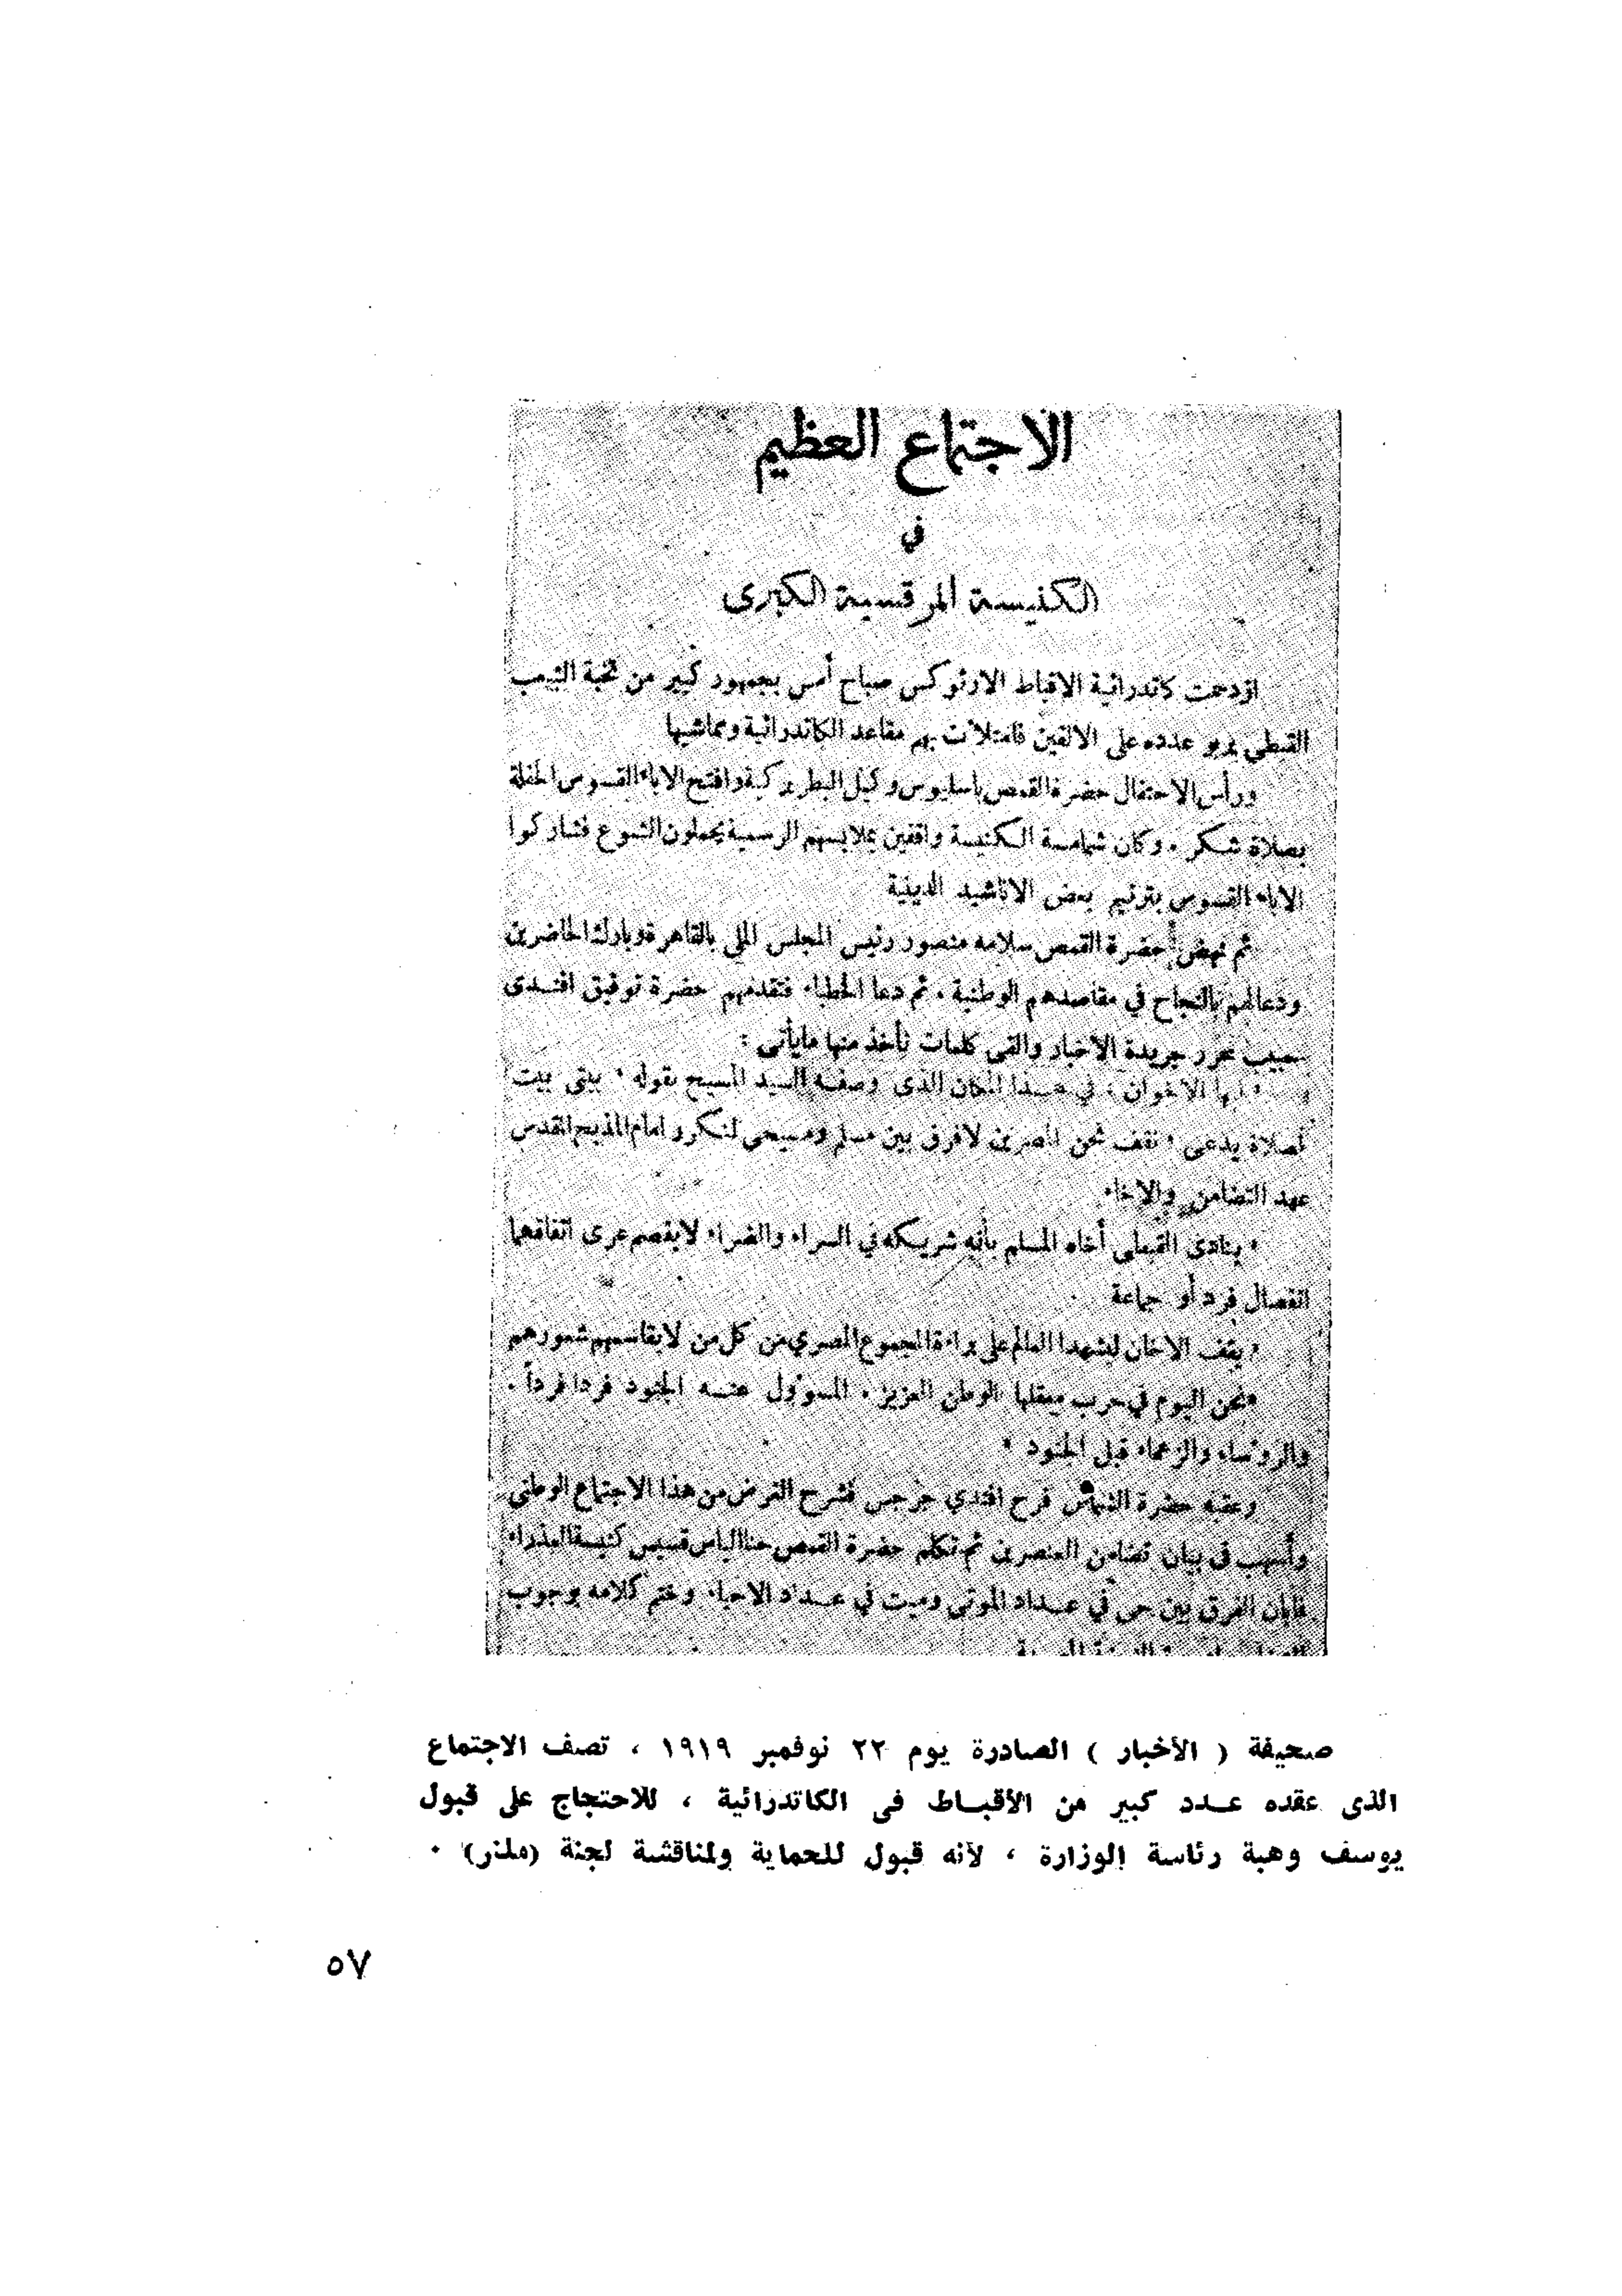 الاجتماع العظيم
في
الكنيسة المرقسية الكبرى
ازدحمت كاتدرائية الاقباط الارثوكس صباح أمس بجمهور كبير من نخبة الشعب
القبطي يربو عدده على الالفين فامتلأت بهم مقاعد الكاتدرائية ومماشيها
ورأس الاحتفال حضرة القمص باسليوس وكيل البطريركية وافتتح الاباء القسوس الحفلة
بصلاة شكر . وكان شمامسة الكنيسة واقفين بملابسهم الرسمية يحملون الشموع فشاركوا
الاباء القسوس بترنيم بعض الاناشيد الدينية
ثم نهض حضرة القمص سلامه منصور رئيس المجلس الملي بالقاهرة وبارك الحاضرين
ودعا لهم بالنجاح في مقاصدهم الوطنية . ثم دعا الخطباء فتقدمهم حضرة توفيق افندى
حبيب محرر جريدة الاخبار والقى كلمات نأخذ منها ما يأتى :
« أيها الاخوان : في هذا المكان الذى وصفه السيد المسيح بقوله « بيتى بيت
لصلاة يدعى » نقف نحن المصريين لا فرق بين مسلم ومسيحى لنكرر امام المذبح المقدس
عهد التضامن والاخاء
« ينادى القبطى أخاه المسلم بأنه شريكه في السراء والضراء لا يفصم عرى اتفاقهما
انفصال فرد أو جماعة
« يقف الاخان ليشهدا العالم على براءة المجموع المصري من كل من لا يقاسمهم شعورهم
« نحن اليوم في حرب معقلها الوطن العزيز . المسوؤل عنه الجنود فردا فرداً .
والروؤساء والزعماء قبل الجنود »
وعقبه حضرة الشماس فرح افندي جرجس فشرح الغرض من هذا الاجتماع الوطنى
وأسهب فى بيان تضامن العنصرين ثم تكلم حضرة القمص حنا الياس قسيس كنيسة العذراء
فابان الفرق بين حى في عداد الموتى وميت في عداد الاحياء وختم كلامه بوجوب
صحيفة ( الأخبار ) الصادرة يوم ٢٢ نوفمبر ١٩١٩ ، تصف الاجتماع
الذى عقده عدد كبير من الأقباط فى الكاتدرائية ، للاحتجاج على قبول
يوسف وهبة رئاسة الوزارة ، لأنه قبول للحماية ولمناقشة لجنة (ملنر) ·
٥٧